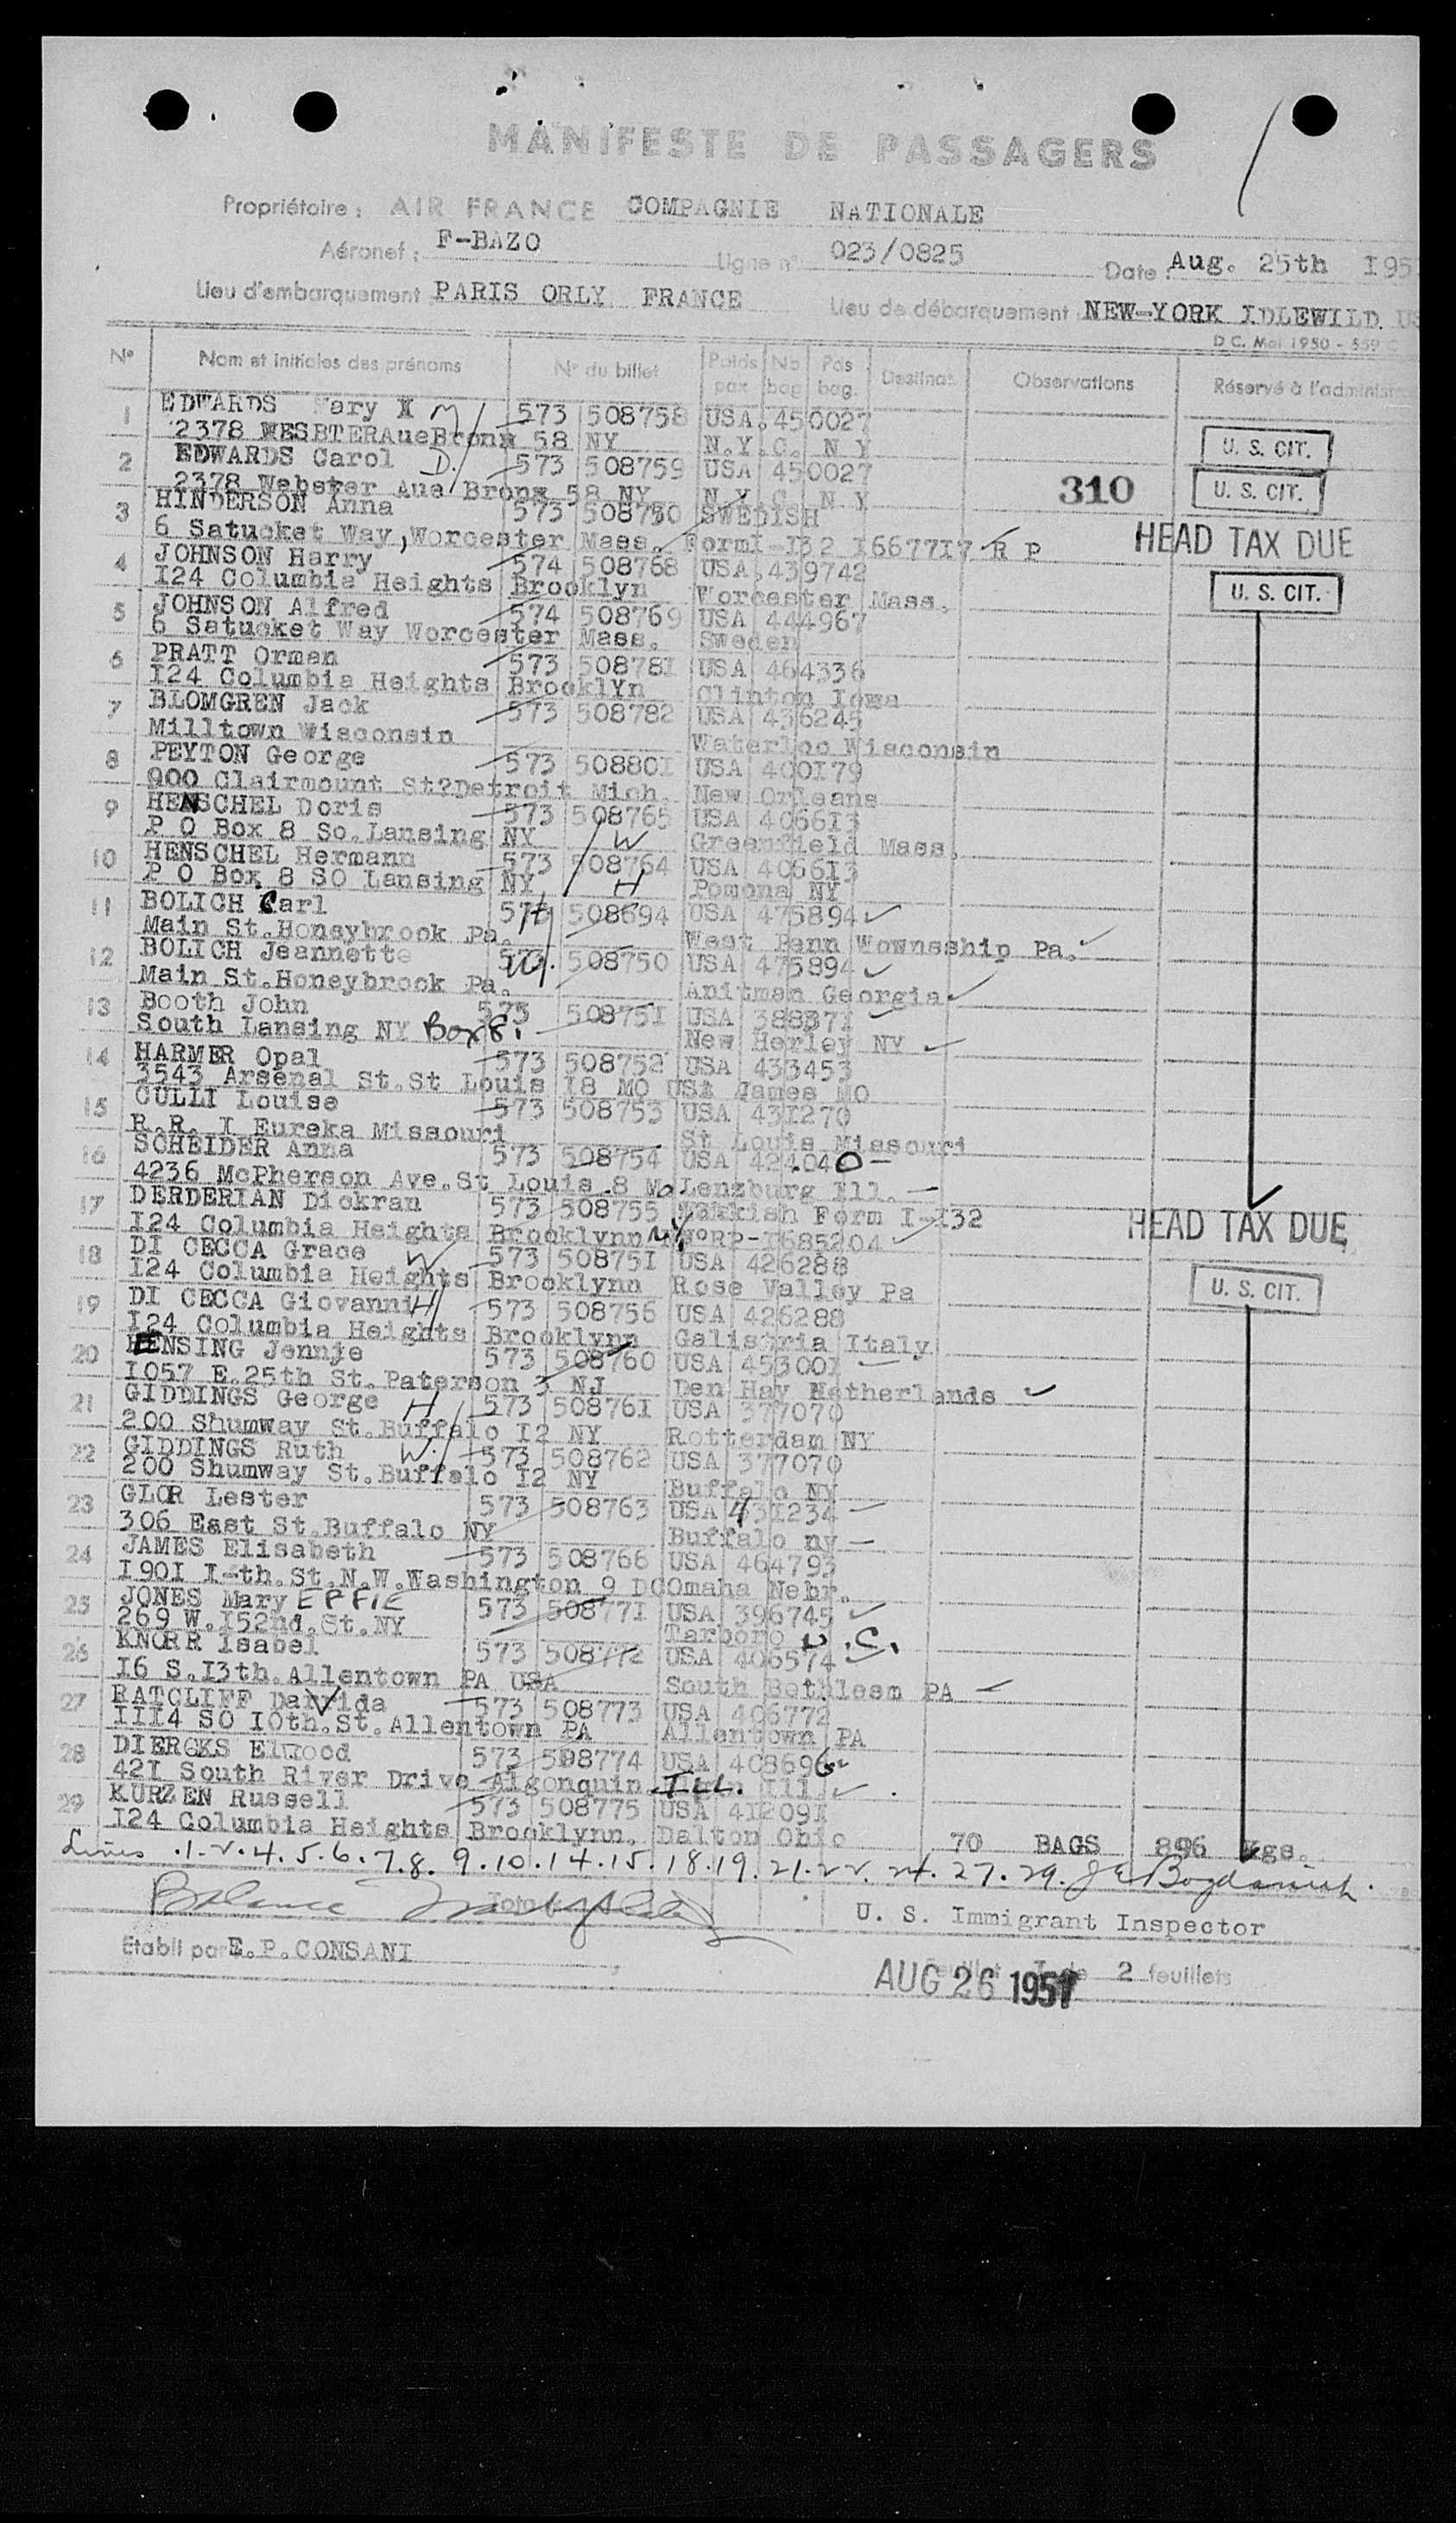 MANIFESTE DE PASSAGERS
Propriétaire : AIR FRANCE COMPAGNIE NATIONALE
Aéronef : F-BAZO Ligne n° 023/0825 Date : Aug. 25th 195
Lieu d'embarquement PARIS ORLY FRANCE Lieu de débarquement NEW-YORK IDLEWILD US
D C. Mai 1950 - 559 C
N° Nom et initiales des prénoms N° du billet Poids pax Nb bag Pds bag. Destinat. Observations Réservé à l'administra
1 EDWARDS Mary M 573 508758 USA. 450027
2378 WESBTERAueBronx 58 NY N.Y.C. N Y U. S. CIT.
2 EDWARDS Carol D. 573 508759 USA 450027
2378 Webster Aue Bronx 58 NY N.Y.C. N Y 310 U. S. CIT.
3 HINDERSON Anna 573 508730 SWEDISH
6 Satucket Way, Worcester Mass. FormI-I32 I6677I7 R P HEAD TAX DUE
4 JOHNSON Harry 574 508768 USA. 439742
I24 Columbia Heights Brooklyn Worcester Mass. U. S. CIT.
5 JOHNSON Alfred 574 508769 USA 444967
6 Satucket Way Worcester Mass. Sweden
6 PRATT Orman 573 50878I USA 464336
I24 Columbia Heights BrooklYn Clinton Iowa
7 BLOMGREN Jack 573 508782 USA 436245
Milltown Wisconsin Waterloo Wisconsin
8 PEYTON George 573 50880I USA 400I79
900 Clairmount St?Detroit Mich. New Orleans
9 HENSCHEL Doris 573 508765 USA 4066I3
P O Box 8 So.Lansing NY W Greenfield Mass.
10 HENSCHEL Hermann 573 508764 USA 4066I3
P O Box 8 SO Lansing NY H Pomona NY
11 BOLICH Carl 573 H 508694 USA 475894
Main St.Honeybrook Pa. West Penn Wownsship Pa.
12 BOLICH Jeannette 573 W. 508750 USA 475894
Main St.Honeybrock Pa. Anitman Georgia
13 Booth John 573 50875I USA 38837I
South Lansing NY Box 8. New Herley NY
14 HARMER Opal 573 508752 USA 433453
3543 Arsenal St.St Louis I8 MO USt James MO
15 CULLI Louise 573 508753 USA 43I270
R.R. I Eureka Missouri St Louis Missouri
16 SCHEIDER Anna 573 508754 USA 424040
4236 McPherson Ave.St Louis 8 Mo Lenzburg Ill.
17 DERDERIAN Dickran 573 508755 Turkish Form I-I32
I24 Columbia Heights Brooklynn NY N°RP-I685204 HEAD TAX DUE
18 DI CECCA Grace W 573 50875I USA 426288
I24 Columbia Heights Brooklynn Rose Valley Pa U. S. CIT.
19 DI CECCA Giovanni H 573 508756 USA 426288
I24 Columbia Heights Brooklynn Galistria Italy
20 HENSING Jennje 573 508760 USA 45300I
I057 E.25th St.Paterson 3 NJ Den Hay Netherlands
21 GIDDINGS George H 573 50876I USA 377070
200 Shumway St.Buffalo I2 NY Rotterdam NY
22 GIDDINGS Ruth W. 573 508762 USA 377070
200 Shumway St.Buffalo I2 NY Buffalo NY
23 GLOR Lester 573 508763 USA 43I234
306 East St.Buffalo NY Buffalo ny
24 JAMES Elisabeth 573 508766 USA 464793
I90I I-th.St.N.W.Washington 9 DCOmaha Nebr.
25 JONES Mary EFFIE 573 50877I USA 396745
269 W.I52nd.St.NY Tarboro N.C.
26 KNORR Isabel 573 508772 USA 406574
I6 S.I3th.Allentown PA USA South Bethlesm PA
27 RATCLIFF Davrida 573 508773 USA 406772
III4 SO I0th.St.Allentown PA Allentown PA
28 DIERCKS Elwood 573 508774 USA 408696
42I South River Drive Algonquin ILL. Ill
29 KURZEN Russell 573 508775 USA 4I209I
I24 Columbia Heights Brooklynn. Dalton Ohio 70 BAGS 896 Kgs.
Lines .1.2.4.5.6.7.8.9.10.14.15.18.19.21.22.24.27.29. J E Bogdanich.
Balance
U. S. Immigrant Inspector
Etabli par E.P.CONSANI
Feuillet I de 2 feuillets
AUG 26 1951